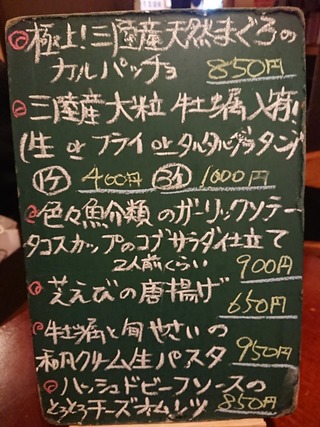 極上!三陸産天然まぐろの
カルパッチョ 850円
三陸産 大粒 牡蠣入荷!
(生 or フライ or タルタルグラタン)
1ケ 400円 3ケ 1000円
色々魚介類のガーリックソテー
タコスカップのコブサラダ仕立て
2人前くらい 900円
芝えびの唐揚げ
650円
牡蠣と旬やさいの
和風クリーム生パスタ 950円
ハッシュドビーフソースの
とろとろチーズオムレツ 850円